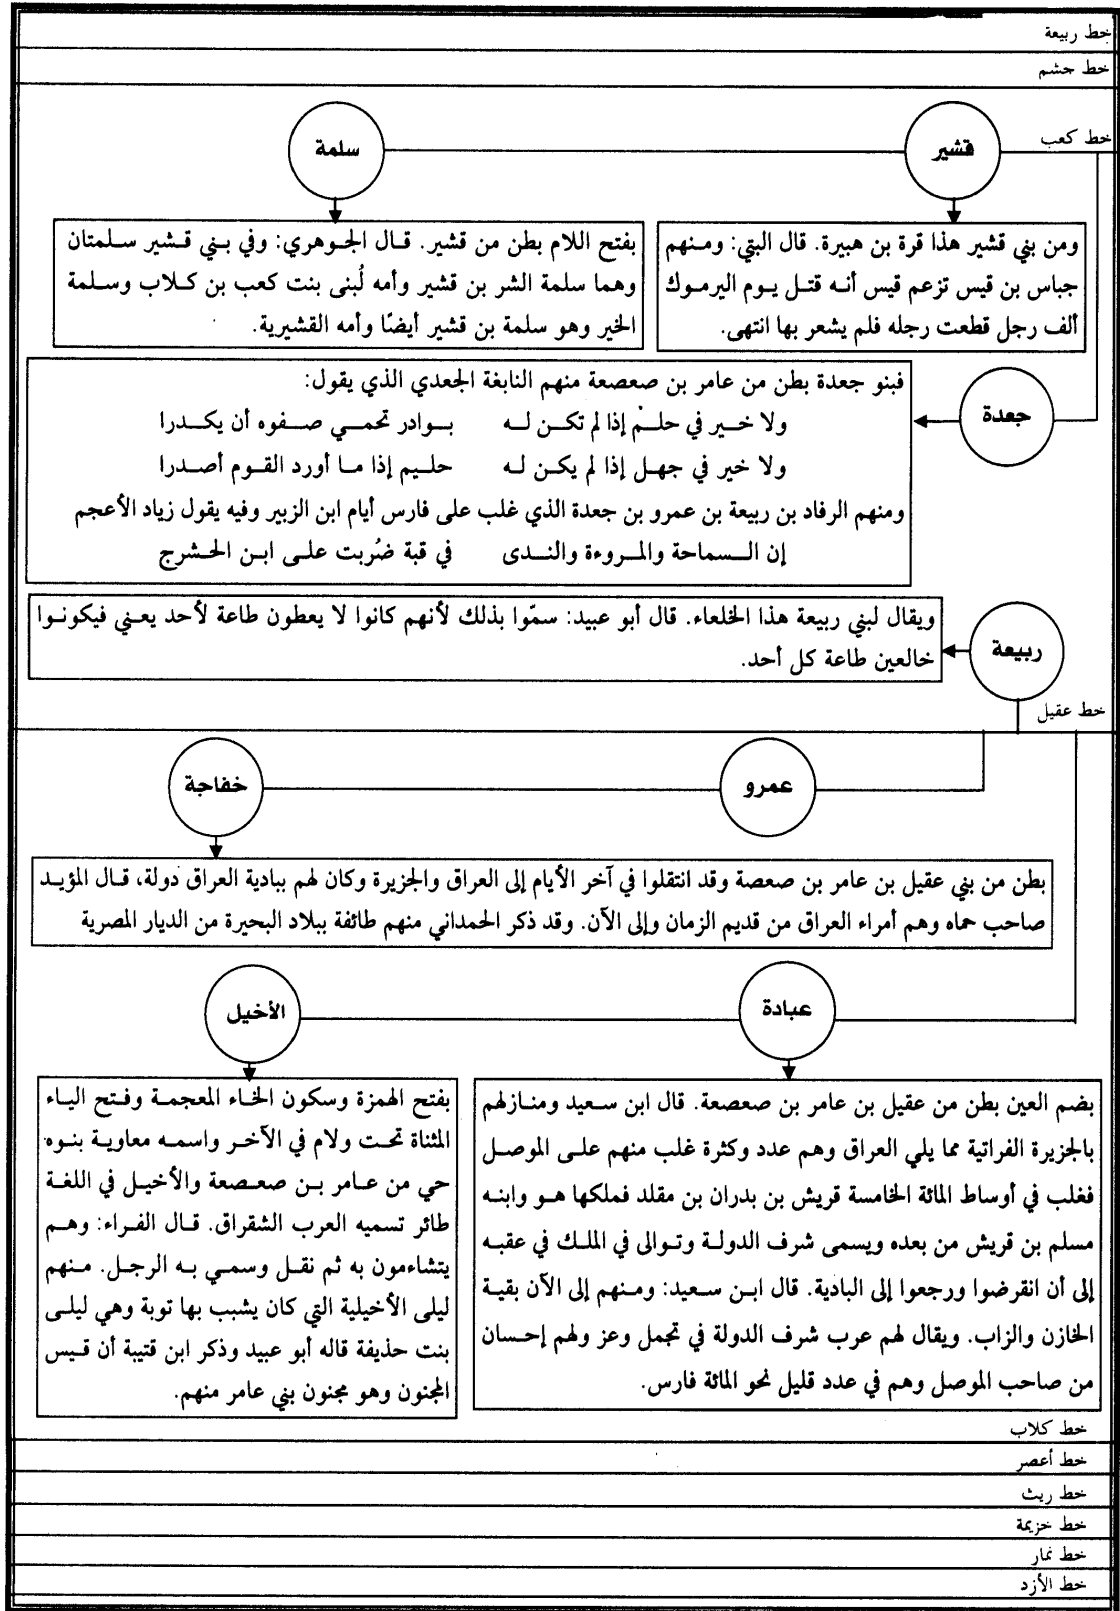 خط ربيعة
خط جشم
خط كعب
قشير
سلمة
ومن بني قشير هذا قرة بن هبيرة. قال البتي: ومنهم
جباس بن قيس تزعم قيس أنه قتل يوم اليرموك
ألف رجل قطعت رجله فلم يشعر بها انتهى.
بفتح اللام بطن من قشير. قال الجوهري: وفي بني قشير سلمتان
وهما سلمة الشر بن قشير وأمه لُبنى بنت كعب بن كلاب وسلمة
الخير وهو سلمة بن قشير أيضًا وأمه القشيرية.
جعدة
فبنو جعدة بطن من عامر بن صعصعة منهم النابغة الجعدي الذي يقول:
ولا خير في حلم إذا لم تكن له بوادر تحمي صفوه أن يكدرا
ولا خير في جهل إذا لم يكن له حليم إذا ما أورد القوم أصدرا
ومنهم الرفاد بن ربيعة بن عمرو بن جعدة الذي غلب على فارس أيام ابن الزبير وفيه يقول زياد الأعجم
إن السماحة والمروءة والندى في قبة ضُربت على ابن الحشرج
ربيعة
ويقال لبني ربيعة هذا الخلعاء. قال أبو عبيد: سمّوا بذلك لأنهم كانوا لا يعطون طاعة لأحد يعني فيكونوا
خالعين طاعة كل أحد.
خط عقيل
عمرو
خفاجة
بطن من بني عقيل بن عامر بن صعصة وقد انتقلوا في آخر الأيام إلى العراق والجزيرة وكان لهم ببادية العراق دولة، قال المؤيد
صاحب حماه وهم أمراء العراق من قديم الزمان وإلى الآن. وقد ذكر الحمداني منهم طائفة ببلاد البحيرة من الديار المصرية
عبادة
الأخيل
بضم العين بطن من عقيل بن عامر بن صعصعة. قال ابن سعيد ومنازلهم
بالجزيرة الفراتية مما يلي العراق وهم عدد وكثرة غلب منهم على الموصل
فغلب في أوساط المائة الخامسة قريش بن بدران بن مقلد فملكها هو وابنه
مسلم بن قريش من بعده ويسمى شرف الدولة وتوالى في الملك في عقبه
إلى أن انقرضوا ورجعوا إلى البادية. قال ابن سعيد: ومنهم إلى الآن بقية
الخازن والزاب. ويقال لهم عرب شرف الدولة في تجمل وعز ولهم إحسان
من صاحب الموصل وهم في عدد قليل نحو المائة فارس.
بفتح الهمزة وسكون الخاء المعجمة وفتح الياء
المثناة تحت ولام في الآخر واسمه معاوية بنوه
حي من عامر بن صعصعة والأخيل في اللغة
طائر تسميه العرب الشقراق. قال الفراء: وهم
يتشاءمون به ثم نقل وسمي به الرجل. منهم
ليلى الأخيلية التي كان يشبب بها توبة وهي ليلى
بنت حذيفة قاله أبو عبيد وذكر ابن قتيبة أن قيس
المجنون وهو مجنون بني عامر منهم.
خط كلاب
خط أعصر
خط ريث
خط خزيمة
خط نمار
خط الأزد